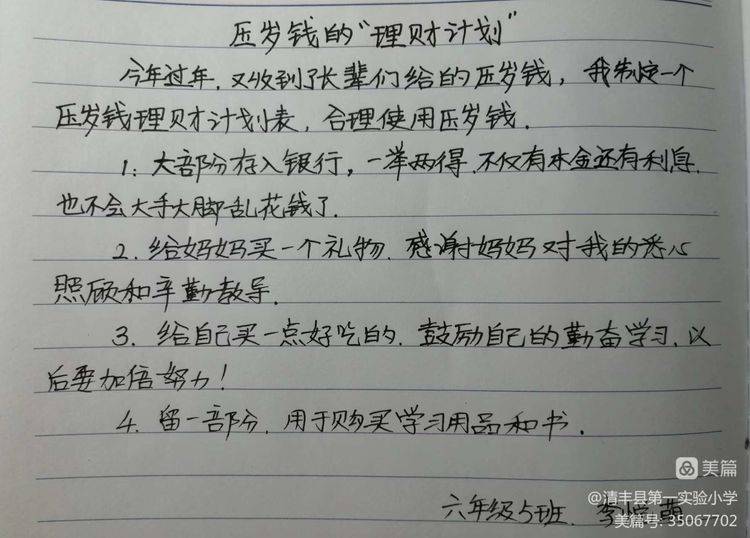 压岁钱的“理财计划”
今年过年,又收到了长辈们给的压岁钱,我制定一个
压岁钱理财计划表,合理使用压岁钱.
1:大部分存入银行,一举两得.不仅有本金还有利息.
也不会大手大脚乱花钱了.
2.给妈妈买一个礼物.感谢妈妈对我的悉心
照顾和辛勤教导.
3.给自己买一点好吃的.鼓励自己的勤奋学习.以
后要加倍努力!
4.留一部分.用于购买学习用品和书.
美篇
@清丰县第一实验小学
六年级5班.李
美篇号:35067702